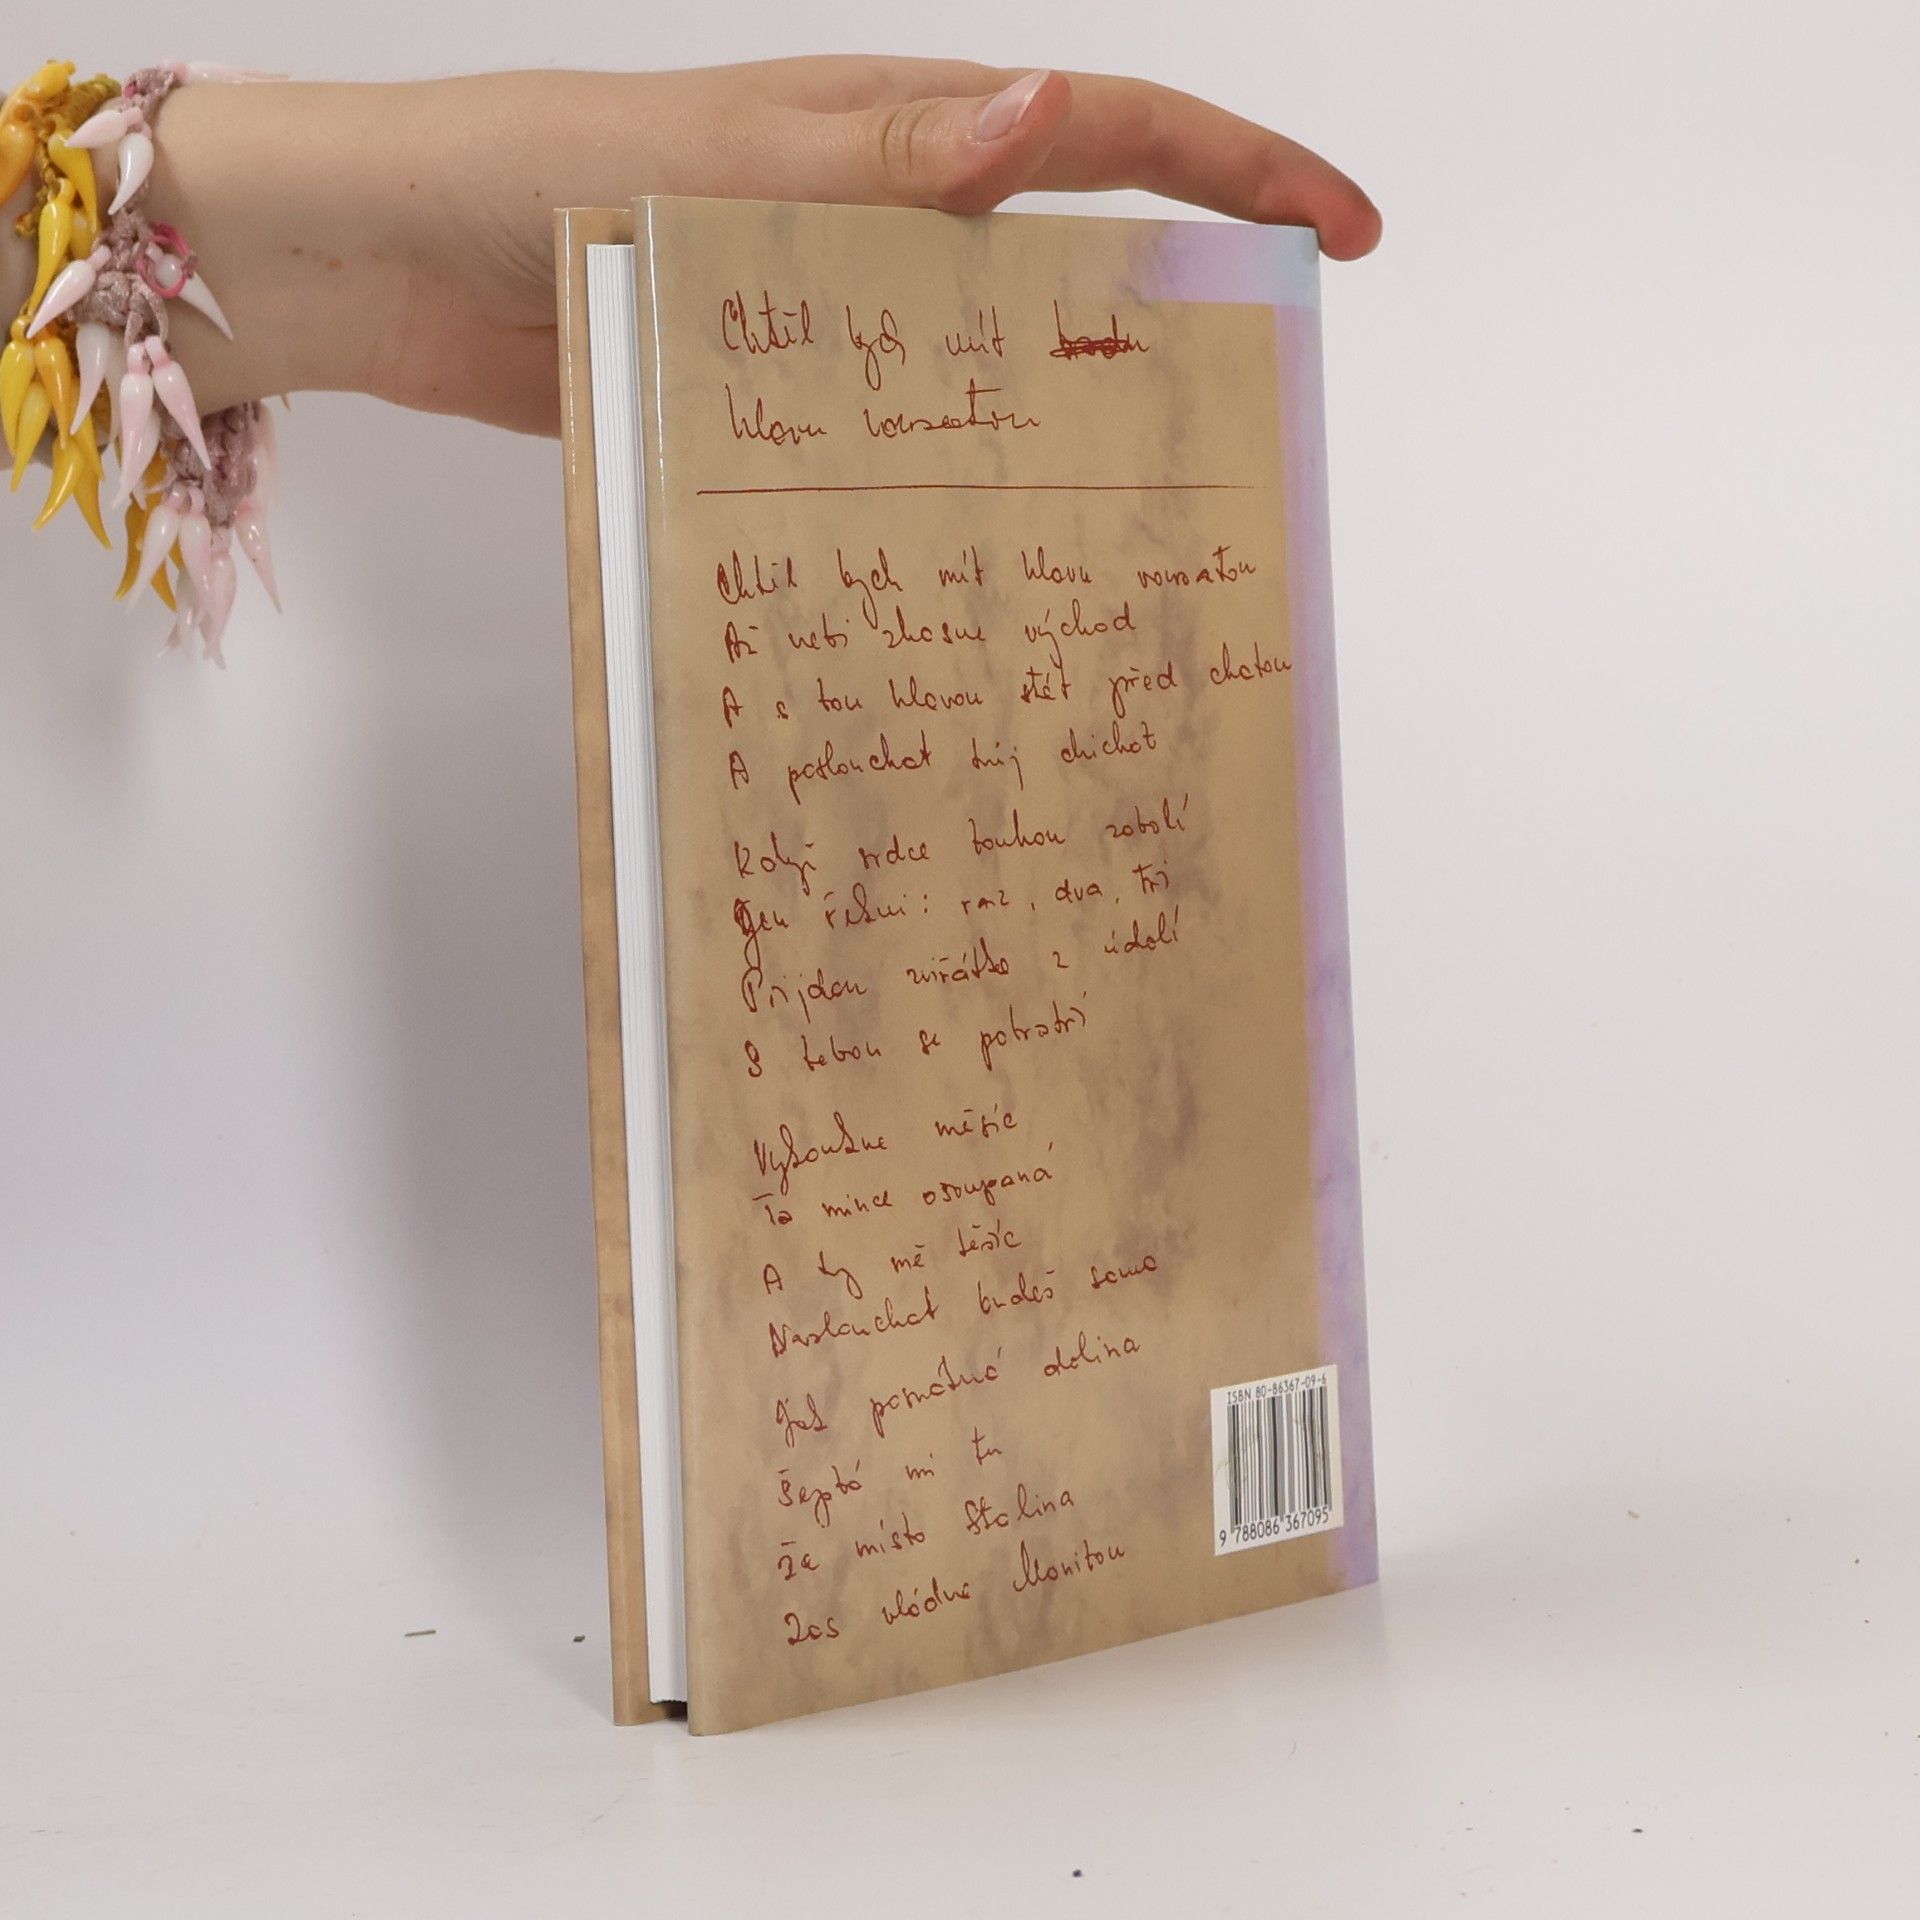 Chtěl bych mít
hlavu vousatou
Chtěl bych mít hlavu vousatou
Až nebi zhasne východ
A s tou hlavou stát před chatou
A poslouchat tvůj chichot
Když srdce touhou zabolí
Jen řekni: raz, dva, tři
Přijdou zvířátka z údolí
S tebou se pobratří
Vykoukne měsíc
Ta mince osoupaná
A ty mě těšíc
Naslouchat budeš sama
Jak památná dolina
Šeptá mi tu
Že místo Stalina
Zas vládne Manitou
ISBN 80-86367-09-6
9 788086 367095